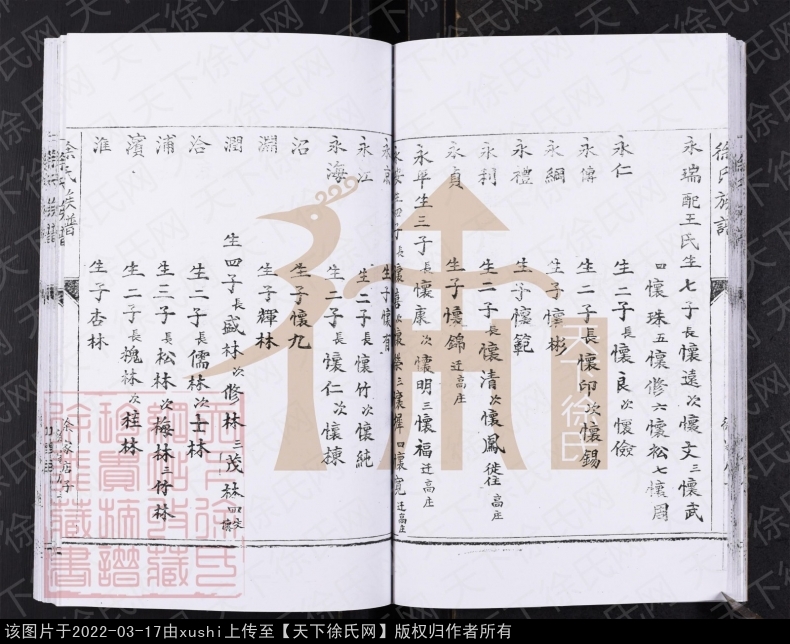 徐氏族譜
永瑞配王氏生七子長懷遠次懷文三懷武
四懷珠五懷修六懷松七懷周
永仁 生二子長懷良次懷儉
永傳 生二子長懷印次懷錫
永綱 生子懷彬
永禮 生子懷範
永利 生二子長懷清次懷鳳徙住高庄
永貞 生子懷錦迁高庄
永平生三子長懷康次懷明三懷福迁高庄
永江 生二子長懷竹次懷純
永海 生二子長懷仁次懷棟
沼 生子懷九
淵 生子輝林
潤 生四子長盛林次修林三茂林四
洽 生二子長儒林次士林
浦 生三子長松林次梅林三竹林
濱 生二子長槐林次桂林
淮 生子杏林
徐氏族譜
天下徐氏
天下徐氏网
该图片于2022-03-17由xushi上传至【天下徐氏网】版权归作者所有